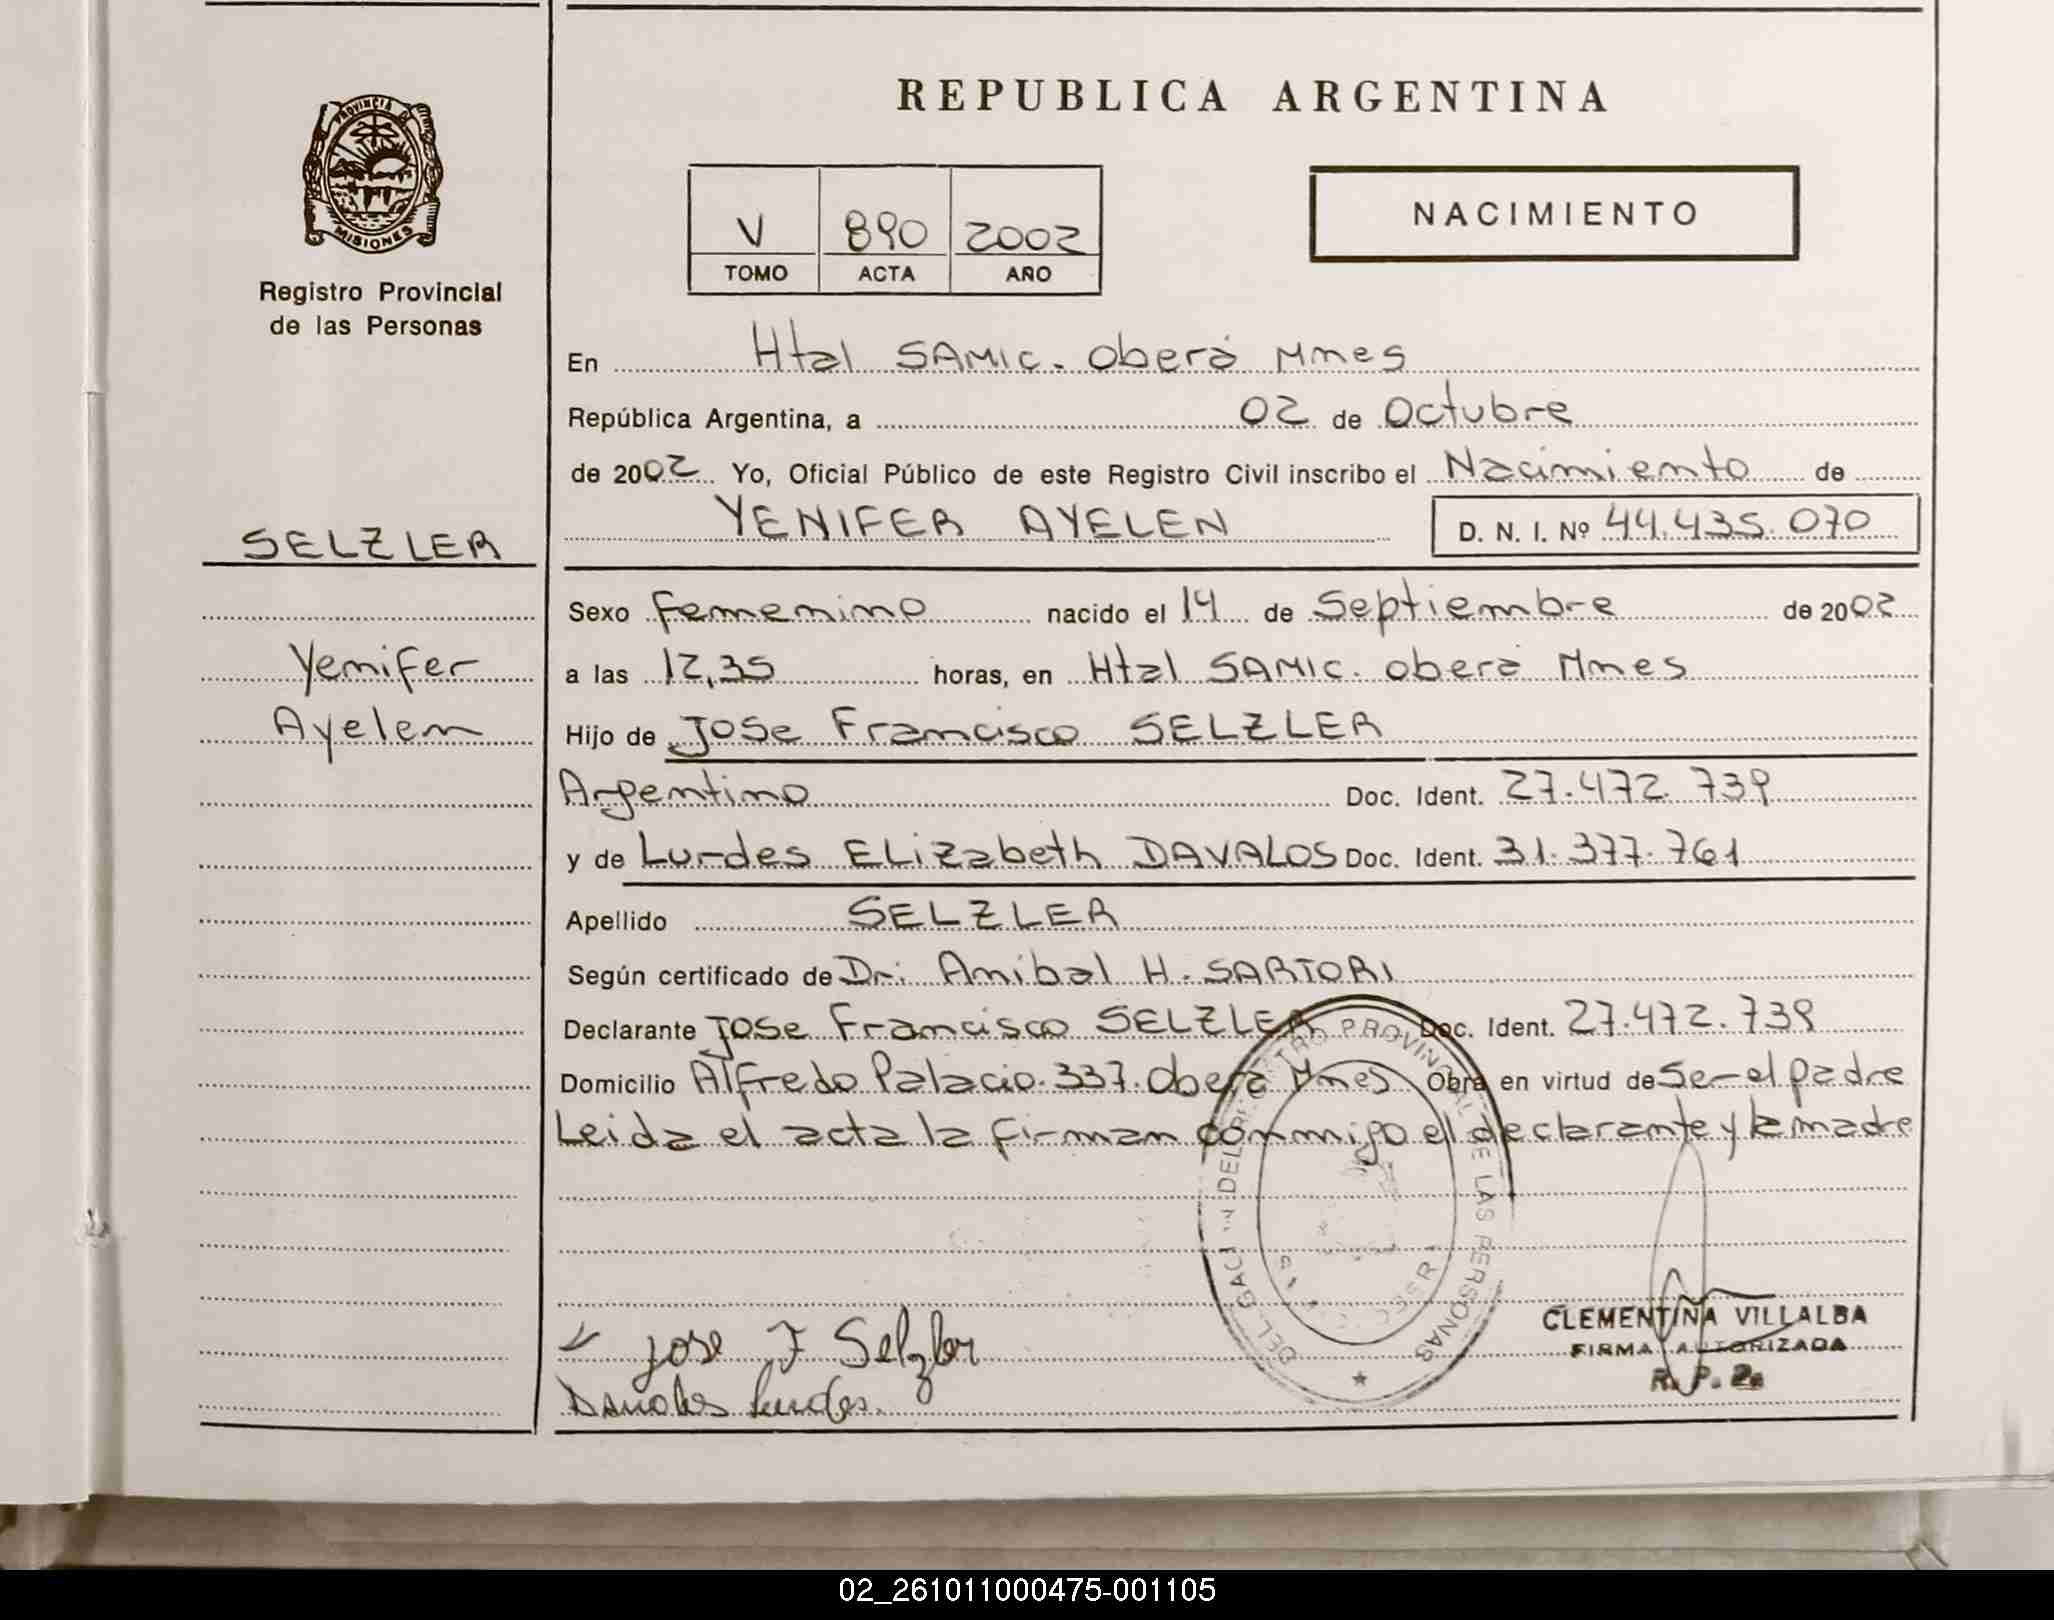 REPUBLICA ARGENTINA
PROVINCIA DE
MISIONES
Registro Provincial
de las Personas
V 890 2002
TOMO ACTA AÑO
NACIMIENTO
En Htal SAMIC. Oberá Mnes
República Argentina, a 02 de Octubre
de 2002 Yo, Oficial Público de este Registro Civil inscribo el Nacimiento de
YENIFER AYELEN D. N. I. Nº 44.435.070
SELZLER
Yenifer
Ayelen
Sexo Femenino nacido el 14 de Septiembre de 2002
a las 12,35 horas, en Htal SAMIC. Oberá Mnes
Hijo de Jose Francisco SELZLER
Argentino Doc. Ident. 27.472.739
y de Lurdes ELizabeth DAVALOS Doc. Ident. 31.377.761
Apellido SELZLER
Según certificado de Dr. Anibal H. SARTORI
Declarante Jose Francisco SELZLER Doc. Ident. 27.472.739
Domicilio Alfredo Palacio. 337. Oberá Mnes Obra en virtud de Ser el padre
Leida el acta la firman conmigo el declarante y la madre
DEL REGISTRO PROVINCIAL DE LAS PERSONAS
Jose F Selzler
Davalos Lurdes.
CLEMENTINA VILLALBA
FIRMA AUTORIZADA
R. P. P.
02_261011000475-001105